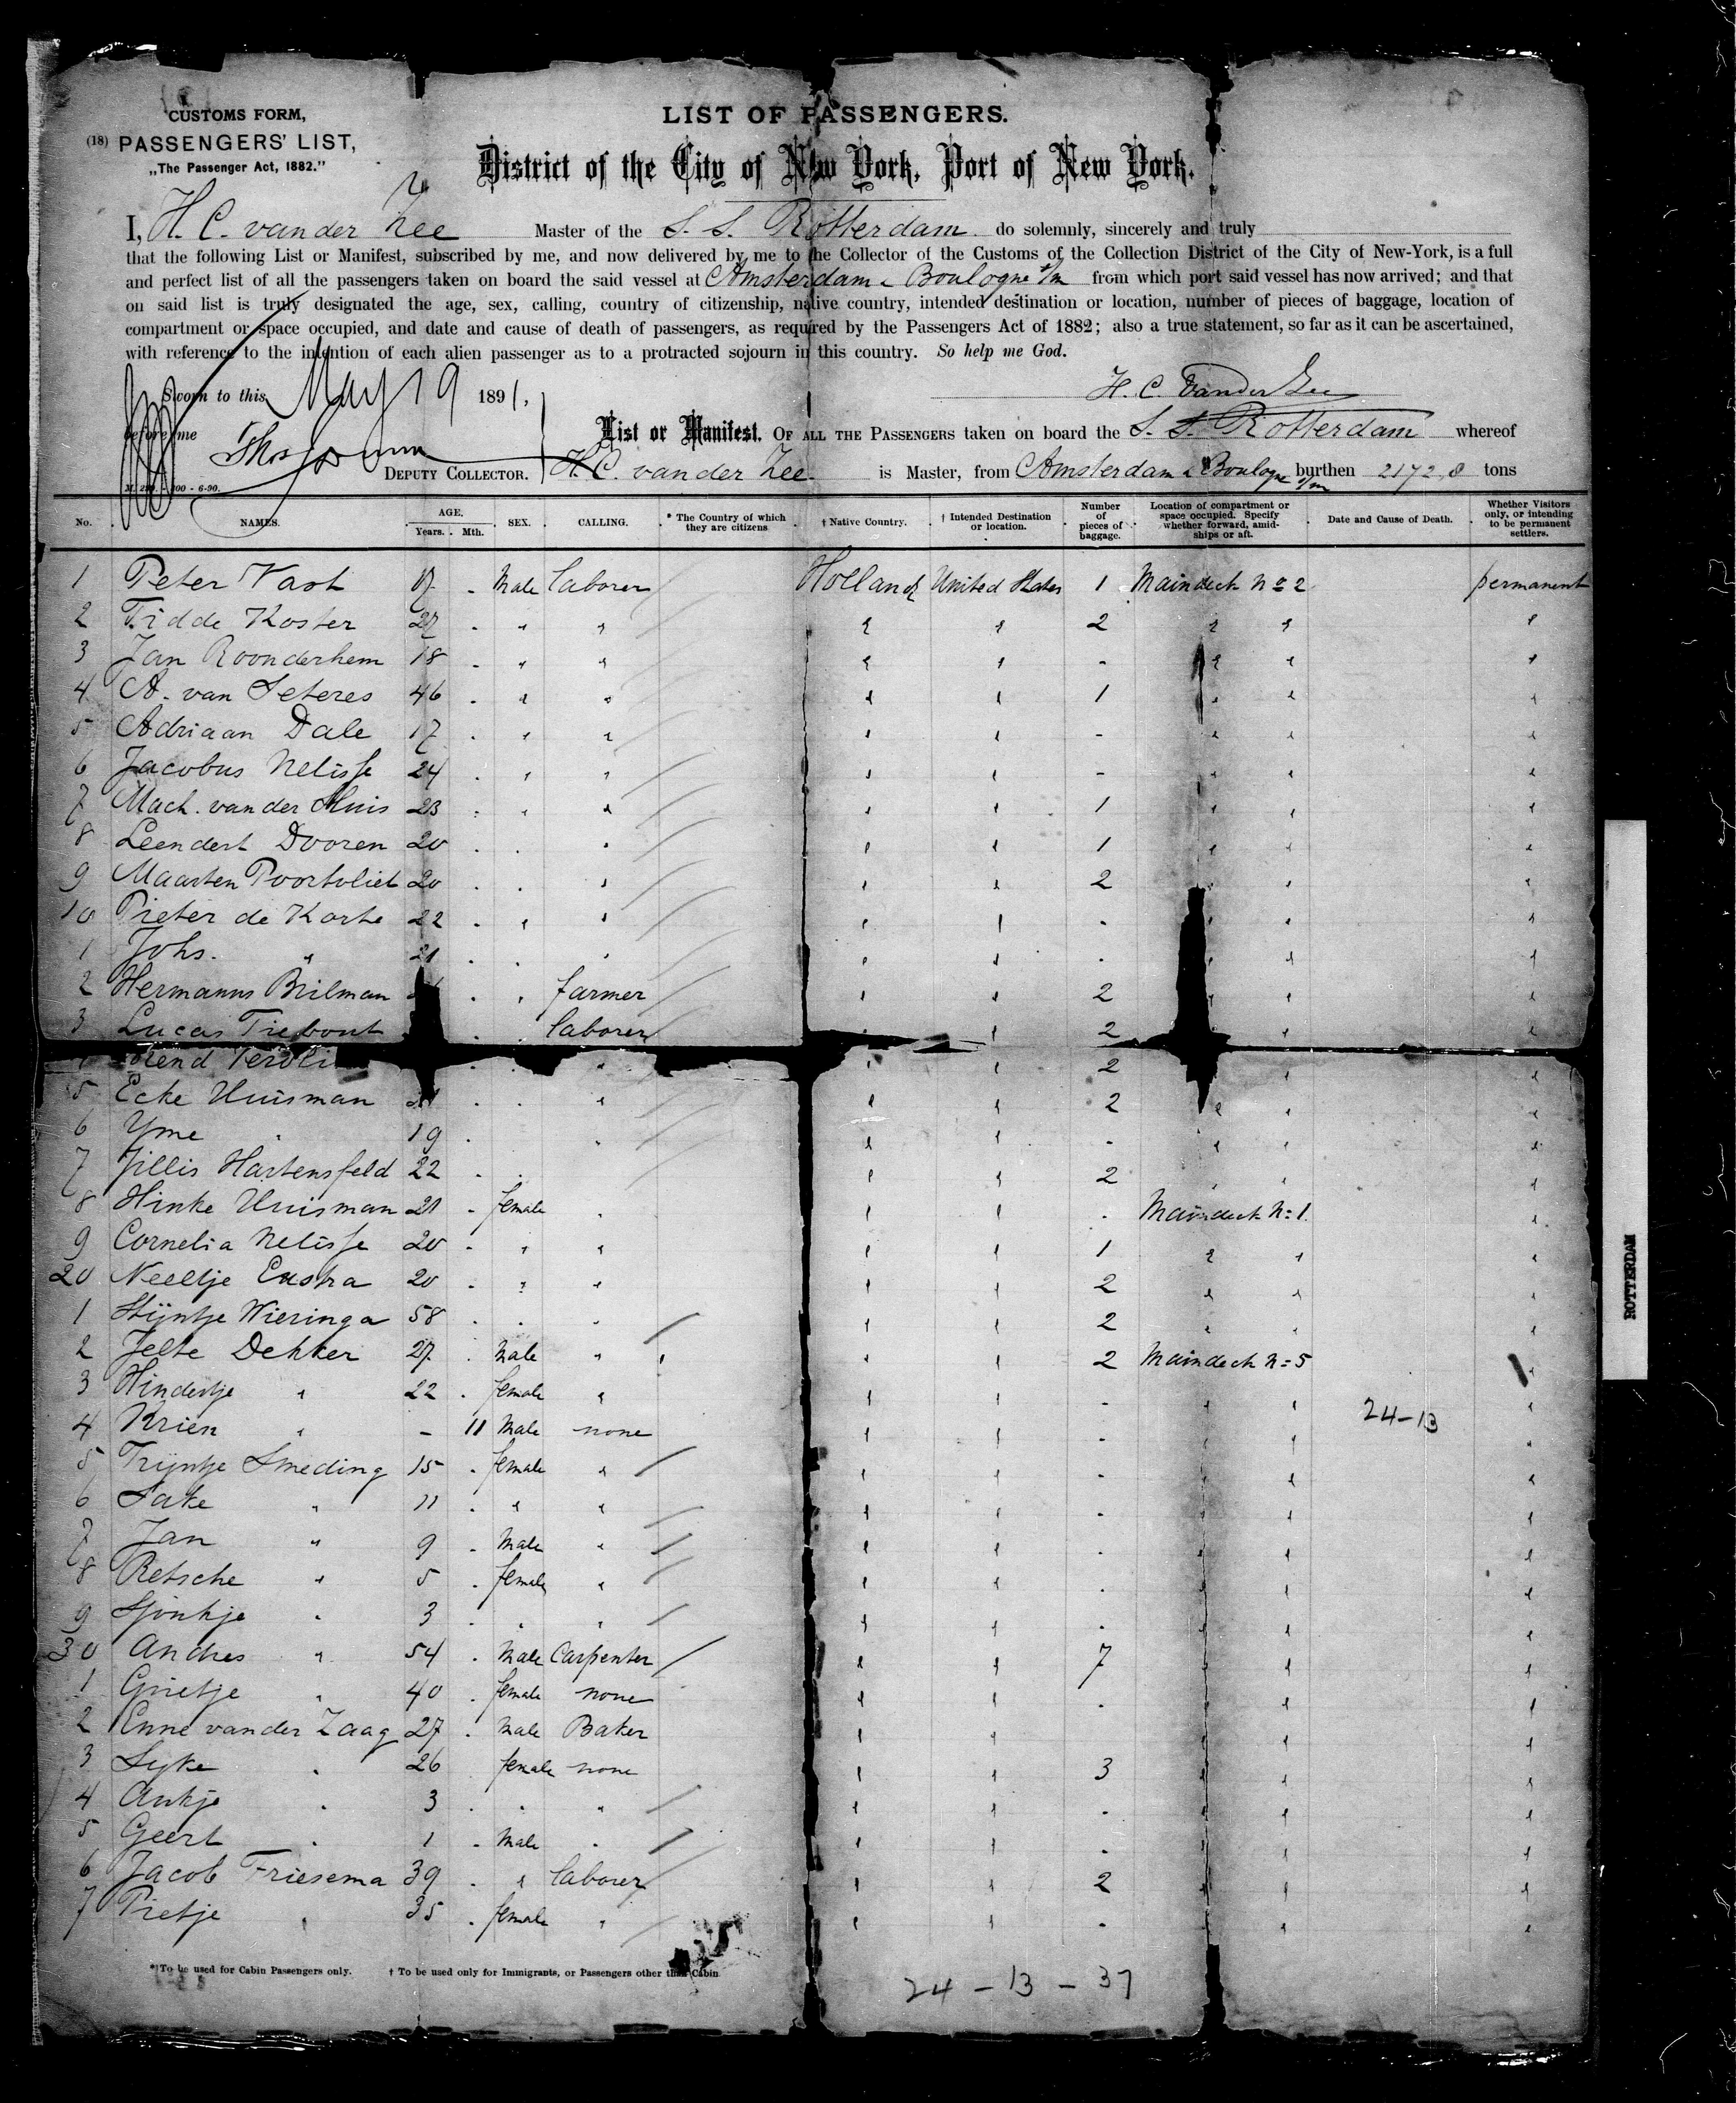 CUSTOMS FORM,
(18) PASSENGERS' LIST,
„The Passenger Act, 1882."
LIST OF PASSENGERS.
District of the City of New York, Port of New York.
I, H. C. van der Zee Master of the S. S. Rotterdam do solemnly, sincerely and truly
that the following List or Manifest, subscribed by me, and now delivered by me to the Collector of the Customs of the Collection District of the City of New-York, is a full
and perfect list of all the passengers taken on board the said vessel at Amsterdam & Boulogne s/m from which port said vessel has now arrived; and that
on said list is truly designated the age, sex, calling, country of citizenship, native country, intended destination or location, number of pieces of baggage, location of
compartment or space occupied, and date and cause of death of passengers, as required by the Passengers Act of 1882; also a true statement, so far as it can be ascertained,
with reference to the intention of each alien passenger as to a protracted sojourn in this country. So help me God.
Sworn to this May 19 1891,
H. C. Van der Zee
before me
DEPUTY COLLECTOR.
List or Manifest. OF ALL THE PASSENGERS taken on board the S. S. Rotterdam whereof
H. C. van der Zee is Master, from Amsterdam & Boulogne s/m burthen 2172,8 tons
No. NAMES. AGE. Years. Mth. SEX. CALLING. * The Country of which they are citizens † Native Country. † Intended Destination or location. Number of pieces of baggage. Location of compartment or space occupied. Specify whether forward, amidships or aft. Date and Cause of Death. Whether Visitors only, or intending to be permanent settlers.
1 Peter Vast 17 - Male laborer Holland United States 1 Maindeck No 2 permanent
2 Tidde Koster 27 - " " " " 2 " " "
3 Jan Roonderhem 18 - " " " " - " " "
4 A. van Seteres 46 - " " " " 1 " " "
5 Adriaan Dale 17 - " " " " - " " "
6 Jacobus Nelisse 24 - " " " " - " " "
7 Mach. van der Sluis 23 - " " " " 1 " " "
8 Leendert Dooren 20 - " " " " 1 " " "
9 Maarten Poortvliet 20 - " " " " 2 " " "
10 Pieter de Korte 22 - " " " " - " " "
1 Johs. " 21 - " " " " - " " "
2 Hermanus Brilman - " farmer " " 2 " " "
3 Lucas Tiebout - " laborer " " 2 " " "
- " " " " 2 " " "
5 Ecke Huisman 21 - " " " " 2 " " "
6 Yme " 19 - " " " " - " " "
7 Jillis Hartensfeld 22 - " " " " 2 " " "
8 Hinke Huisman 21 - female " " " - Maindeck No 1 "
9 Cornelia Nelisse 20 - " " " " 1 " " "
20 Neeltje Enstra 20 - " " " " 2 " " "
1 Stijntje Wieringa 58 - " " " " 2 " " "
2 Jelte Dekker 27 - Male " " " 2 Maindeck No 5 "
3 Hindertje " 22 - female " " " - " " 24-13 "
4 Krien " - 11 Male none " " - " " "
5 Trijntje Smeding 15 - female " " " - " " "
6 Sake " 11 - " " " " - " " "
7 Jan " 9 - Male " " " - " " "
8 Retsche " 5 - female " " " - " " "
9 Sjoukje " 3 - " " " " - " " "
30 Andres " 54 - Male Carpenter " " 7 " " "
1 Grietje " 40 - female none " " - " " "
2 Enne van der Zaag 27 - Male Baker " " " " "
3 Syke " 26 female none " " 3 " " "
4 Antje " 3 - " " " " - " " "
5 Geert " 1 - Male " " " - " " "
6 Jacob Friesema 39 - " laborer " " 2 " " "
7 Pietje " 35 - female " " " - " " "
* To be used for Cabin Passengers only. † To be used only for Immigrants, or Passengers other than Cabin
24 - 13 - 37
ROTTERDAM